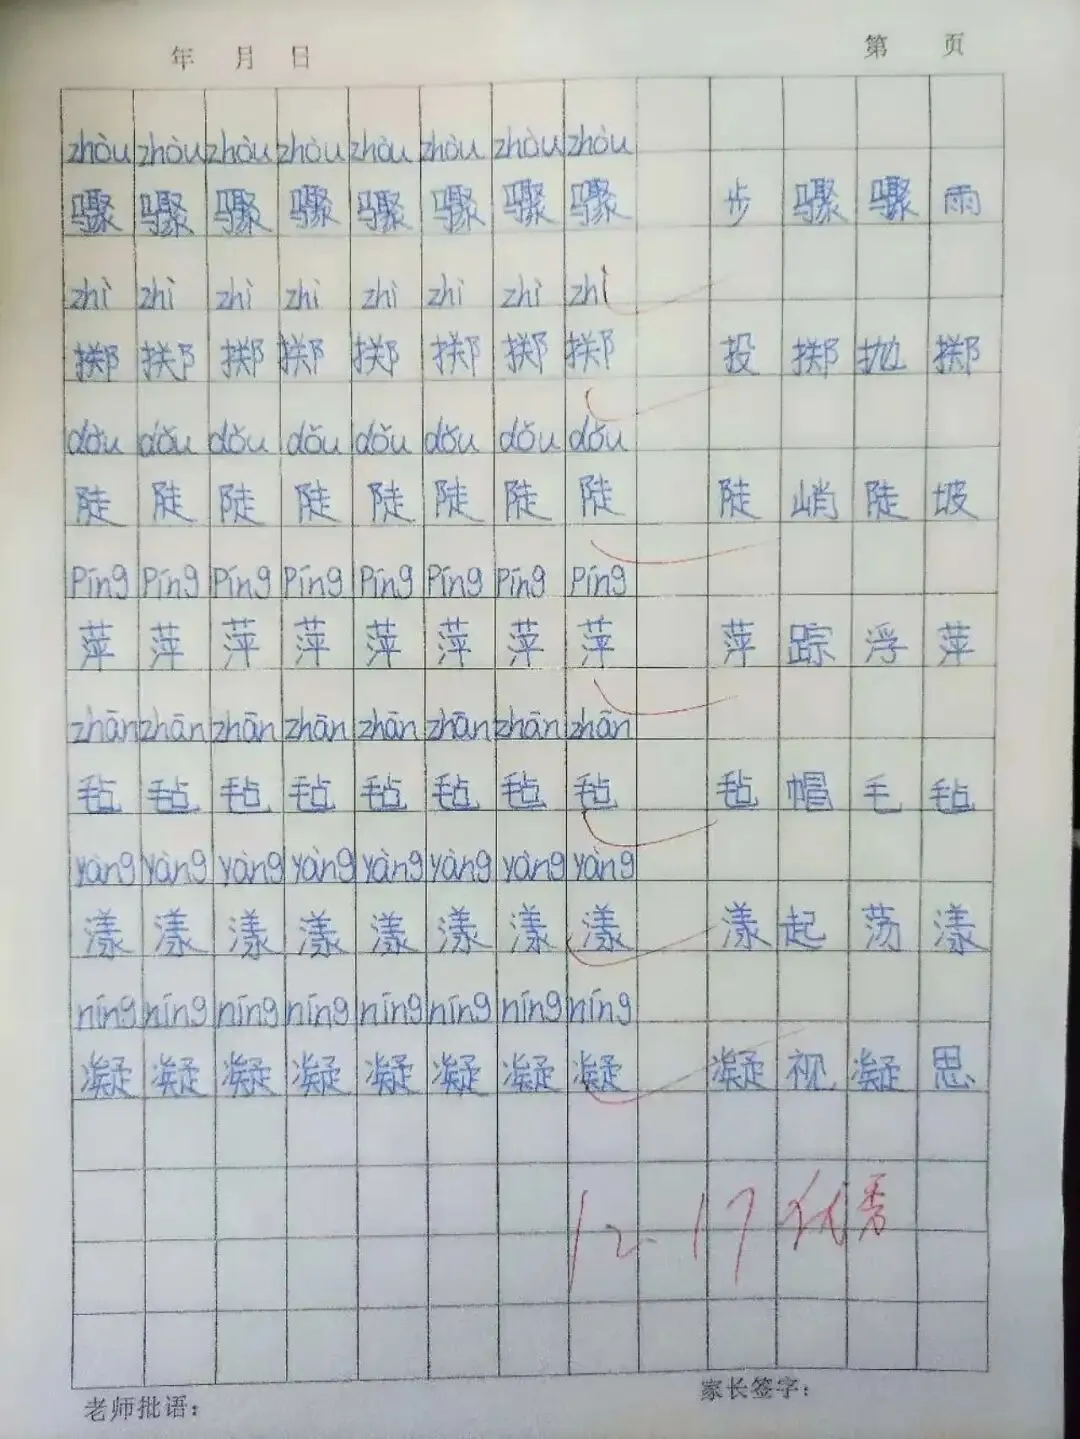 年 月 日 第 页
zhòu zhòu zhòu zhòu zhòu zhòu zhòu zhòu
骤 骤 骤 骤 骤 骤 骤 骤 步 骤 骤 雨
zhì zhì zhì zhì zhì zhì zhì zhì
掷 掷 掷 掷 掷 掷 掷 掷 投 掷 抛 掷
dǒu dǒu dǒu dǒu dǒu dǒu dǒu dǒu
陡 陡 陡 陡 陡 陡 陡 陡 陡 峭 陡 坡
píng píng píng píng píng píng píng píng
萍 萍 萍 萍 萍 萍 萍 萍 萍 踪 浮 萍
zhān zhān zhān zhān zhān zhān zhān zhān
毡 毡 毡 毡 毡 毡 毡 毡 毡 帽 毛 毡
yàng yàng yàng yàng yàng yàng yàng yàng
漾 漾 漾 漾 漾 漾 漾 漾 漾 起 荡 漾
níng níng níng níng níng níng níng níng
凝 凝 凝 凝 凝 凝 凝 凝 凝 视 凝 思
12.17 优秀
老师批语： 家长签字：